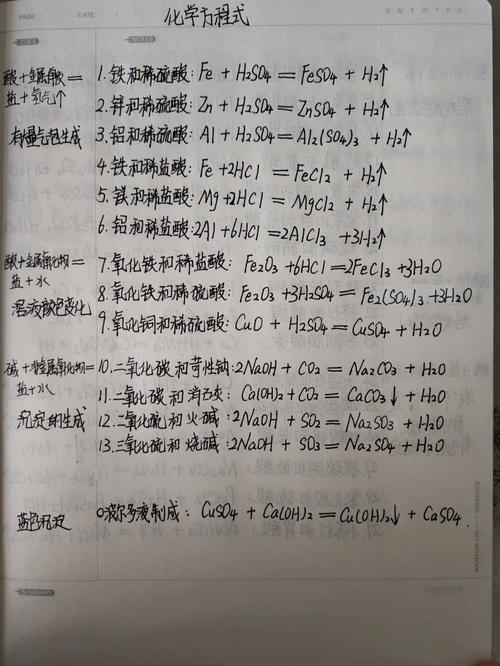 化学方程式
PAGE DATE / / S M T W T F S
CUES NOTES
酸+金属单质=
盐+氢气↑
有气泡生成
1.铁和稀硫酸: Fe + H2SO4 = FeSO4 + H2↑
2.锌和稀硫酸: Zn + H2SO4 = ZnSO4 + H2↑
3.铝和稀硫酸: Al + H2SO4 = Al2(SO4)3 + H2↑
4.铁和稀盐酸: Fe +2HCl = FeCl2 + H2↑
5.镁和稀盐酸: Mg +2HCl = MgCl2 + H2↑
6.铝和稀盐酸: 2Al +6HCl = 2AlCl3 +3H2↑
酸+金属氧化物=
盐+水
溶液颜色变化
7.氧化铁和稀盐酸: Fe2O3 +6HCl =2FeCl3 +3H2O
8.氧化铁和稀硫酸: Fe2O3 +3H2SO4 = Fe2(SO4)3 +3H2O
9.氧化铜和稀硫酸: CuO + H2SO4 = CuSO4 + H2O
碱+非金属氧化物=
盐+水
沉淀的生成
10.二氧化碳和苛性钠: 2NaOH + CO2 = Na2CO3 + H2O
11.二氧化碳和消石灰: Ca(OH)2 + CO2 = CaCO3↓ + H2O
12.二氧化硫和火碱: 2NaOH + SO2 = Na2SO3 + H2O
13.三氧化硫和烧碱: 2NaOH + SO3 = Na2SO4 + H2O
蓝色
波尔多液制成: CuSO4 + Ca(OH)2 = Cu(OH)2↓ + CaSO4.
SUMMARY